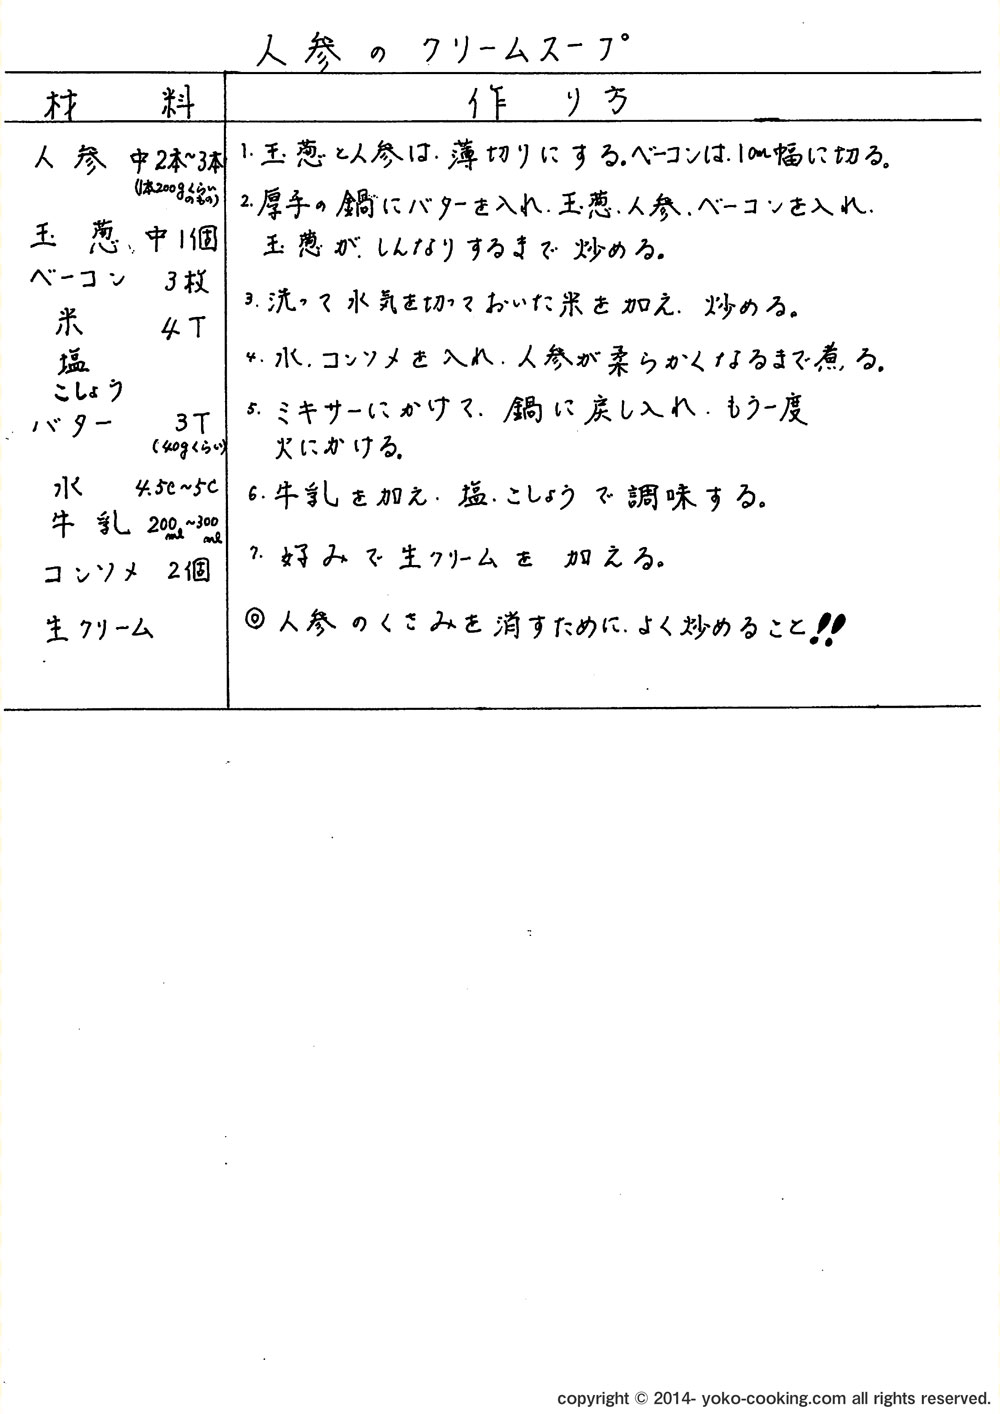 人参のクリームスープ
材料
作り方
人参 中2本~3本
(1本200gくらい
のもの)
玉葱 中1個
ベーコン 3枚
米 4T
塩
こしょう
バター 3T
(40gくらい)
水 4.5C~5C
牛乳 200ml~300ml
コンソメ 2個
生クリーム
1. 玉葱と人参は、薄切りにする。ベーコンは、1cm幅に切る。
2. 厚手の鍋にバターを入れ、玉葱、人参、ベーコンを入れ、
玉葱が、しんなりするまで炒める。
3. 洗って水気を切っておいた米を加え、炒める。
4. 水、コンソメを入れ、人参が柔らかくなるまで煮る。
5. ミキサーにかけて、鍋に戻し入れ、もう一度
火にかける。
6. 牛乳を加え、塩、こしょうで調味する。
7. 好みで生クリームを加える。
◎ 人参のくさみを消すために、よく炒めること!!
copyright © 2014- yoko-cooking.com all rights reserved.